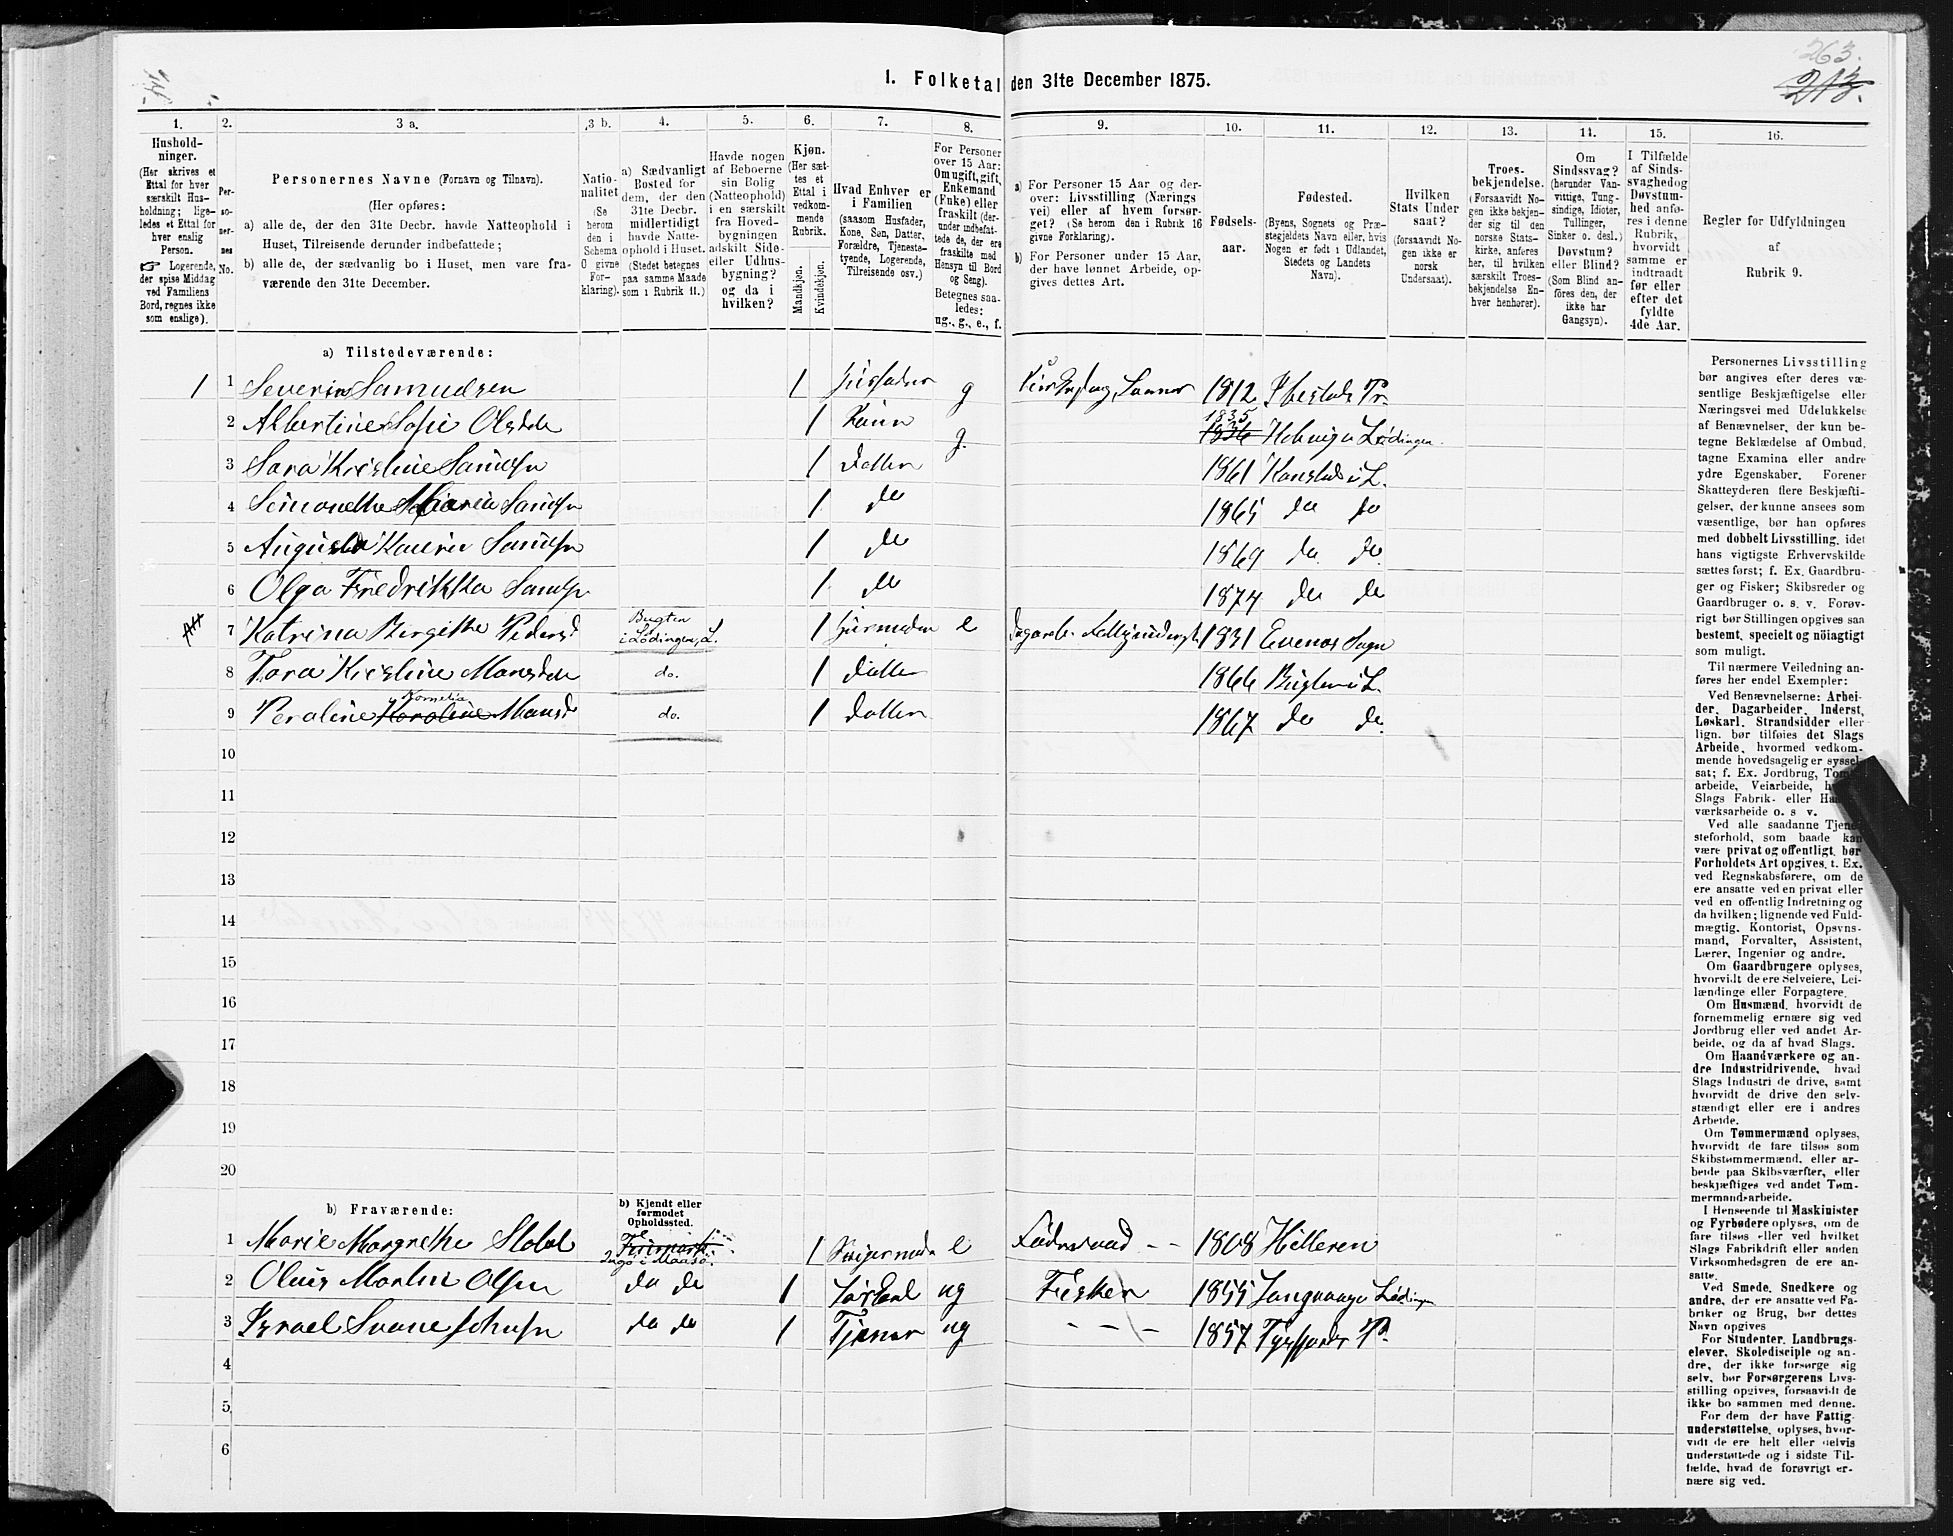 263.
213.
1. Folketal den 31te December 1875.
1. 2. 3 a. 3 b. 4. 5. 6. 7. 8. 9. 10. 11. 12. 13. 14. 15. 16.
Hushold-
ninger.
(Her skrives et
Ettal for hver
særskilt Hus-
holdning; lige-
ledes et Ettal for
hver enslig
Person.
☞ Logerende,
der spise Middag
ved Familiens
Bord, regnes ikke
som enslige).
Per-
so-
ner-
nes
No.
Personernes Navne (Fornavn og Tilnavn).
(Her opføres:
a) alle de, der den 31te Decbr. havde Natteophold i
Huset, Tilreisende derunder indbefattede;
b) alle de, der sædvanlig bo i Huset, men vare fra-
værende den 31te December.
Natio-
nalitet
(Se
herom
den i
Schema
O givne
For-
klaring).
a) Sædvanligt
Bosted for
dem, der den
31te Decbr.
midlertidigt
havde Natte-
ophold i Huset.
(Stedet betegnes
paa samme Maade
som i Rubrik 11.)
Havde nogen
af Beboerne
sin Bolig
(Natteophold)
i en særskilt
fra Hoved-
bygningen
adskilt Side-
eller Udhus-
bygning?
og da i
hvilken?
Kjøn.
(Her sæt-
tes et
Ettal i
vedkom-
mende
Rubrik.
Mandkjøn.
Kvindekjøn.
Hvad Enhver er
i Familien
(saasom Husfader,
Kone, Søn, Datter,
Forældre, Tjeneste-
tyende, Logerende,
Tilreisende osv.)
For Personer
over 15 Aar:
Om ugift, gift,
Enkemand
(Enke) eller
fraskilt (der-
under indbefat-
tede de, der ere
fraskilte med
Hensyn til Bord
og Seng).
Betegnes saa-
ledes:
ug., g., e., f.
a) For Personer 15 Aar og der-
over: Livsstilling (Nærings
vei) eller af hvem forsør-
get? (Se herom den i Rubrik 16
givne Forklaring).
b) For Personer under 15 Aar,
der have lønnet Arbeide, op-
gives dettes Art.
Fødsels-
aar.
Fødested.
(Byens, Sognets og Præ-
stegjeldets Navn eller, hvis
Nogen er født i Udlandet,
Stedets og Landets
Navn).
Hvilken
Stats Under
saat?
(forsaavidt No-
gen ikke er
norsk
Undersaat).
Troes-
bekjendelse.
(Forsaavidt No-
gen ikke bekjen-
der sig til den
norske Stats-
kirke, anføres
her, til hvilken
særskilt Troes-
bekjendelse En-
hver henhører).
Om
Sindssvag?
(herunder Van-
vittige, Tung-
sindige, Idioter,
Tullinger,
Sinker o. desl.)
Døvstum?
eller Blind?
(Som Blind an-
føres den, der
ikke har
Gangsyn).
I Tilfælde
af Sinds-
svaghed og
Døvstum-
hed anfø-
res i denne
Rubrik,
hvorvidt
samme er
indtraadt
før eller
efter det
fyldte
4de Aar.
Regler for Udfyldningen
af
Rubrik 9.
a) Tilstedeværende:
1 1 Severin Samuelsen 1 Husfader g 1812 Ibestads Pr.
2 Albertine Sofie Olsdtr 1 Kone g. 1835 1836 i Lødingen
3 Sara Kristine Samsn 1 Datter 1861 Kanstad i L.
4 Simonethe Maria Samsn 1 do 1865 do do
5 Augusta Samsn 1 do 1869 do do.
6 Olga Fredrikka Samsn 1 do 1874 do do
7 Katrina Birgithe Pedersd Bugten i Lødingen, L. 1 e 1831 Evenes Sogn
8 Tora Kristine Monsdtr do. 1 Datter 1866 Bugten i L.
9 Peroline Karoline Kornelia Monsd do. 1 Datter 1867 do do.
10
11
12
13
14
15
16
17
18
19
20
b) Fraværende:
b) Kjendt eller
formodet
Opholdssted.
1 Marie Margrethe Ingø i Maasø. 1 e Føderaad -- 1808 Hilleren
2 Oluis Martin Olsen do do 1 ug Fisker 1855 Lødingen
3 Israel Svane Johnsn do do 1 Tjener ug - - - 1857 Tysfjord P.
4
5
6
Personernes Livsstilling
bør angives efter deres væ-
sentlige Beskjæftigelse eller
Næringsvei med Udelukkelse
af Benævnelser, der kun be-
tegne Beklædelse af Ombud,
tagne Examina eller andre
ydre Egenskaber. Forener
Skatteyderen flere Beskjæfti-
gelser, der kunne ansees som
væsentlige, bør han opføres
med dobbelt Livsstilling, idet
hans vigtigste Erhvervskilde
sættes først; f. Ex. Gaardbru-
ger og Fisker; Skibsreder og
Gaardbruger o. s. v. Forøv-
rigt bør Stillingen opgives saa
bestemt, specielt og nöiagtigt
som muligt.
Til nærmere Veiledning an-
føres her endel Exempler:
Ved Benævnelserne: Arbei-
der, Dagarbeider, Inderst,
Løskarl, Strandsidder eller
lign. bør tilføies det Slags
Arbeide, hvormed vedkom-
mende hovedsagelig er syssel-
sat; f. Ex. Jordbrug, Tom
arbeide, Veiarbeide, h
Slags Fabrik- eller Ha
værksarbeide o. s v.
Ved alle saadanne Tjene
steforhold, som baade kan
være privat og offentligt, bør
Forholdets Art opgives, t. Ex.
ved Regnskabsførere, om de
ere ansatte ved en privat eller
ved en offentlig Indretning og
da hvilken; lignende ved Fuld-
mægtig, Kontorist, Opsyns-
mand, Forvalter, Assistent,
Lærer, Ingeniør og andre.
Om Gaardbrugere oplyses,
hvorvidt de ere Selveiere, Lei-
lændinge eller Forpagtere.
Om Husmænd, hvorvidt de
fornemmelig ernære sig ved
Jordbrug eller ved andet Ar-
beide, og da af hvad Slags.
Om Haandværkere og an-
dre Industridrivende, hvad
Slags Industri de drive, samt
hvorvidt de drive den selv-
stændigt eller ere i andres
Arbeide.
Om Tømmermænd oplyses,
hvorvidt de fare tilsøs som
Skibstømmermænd, eller ar-
beide paa Skibsværfter, eller
beskjæftiges ved andet Tøm-
mermandsarbeide.
I Henseende til Maskinister
og Fyrbødere oplyses, om de
fare tilsøs eller ved hvilket
Slags Fabrikdrift eller anden
Virksomhedsgren de ere an-
satte.
Ved Smede, Snedkere og
andre, der ere ansatte ved Fa-
briker og Brug, bør dettes
Navn opgives
For Studenter, Landbrugs-
elever, Skoledisciple og an-
dre, der ikke forsørge sig
selv, bør Forsørgerens Livs-
stilling opgives, forsaavidt de
ikke bo sammen med denne.
For dem der have Fattig-
understøttelse, oplyses, hvor-
vidt de ere helt eller delvis
understøttede og i sidste Til-
fælde, hvad de forøvrigt er-
nære sig ved.